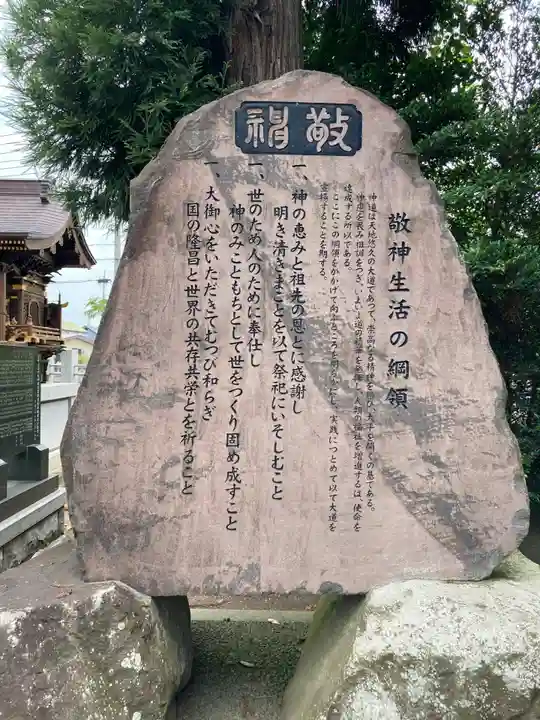 敬神
敬神生活の綱領
神道は天地悠久の大道であつて、崇高なる精神を培ひ、太平を開くの基である。
神慮を畏み祖訓をつぎ、いよいよ道の精華を発揮し、人類の福祉を増進するは、使命を
達成する所以である。
ここにこの綱領をかかげて向ふところを明らかにし、実践につとめて以て大道を
宣揚することを期する。
一、神の恵みと祖先の恩とに感謝し
明き清きまことを以て祭祀にいそしむこと
一、世のため人のために奉仕し
神のみこともちとして世をつくり固め成すこと
一、大御心をいただきてむつび和らぎ
国の隆昌と世界の共存共栄とを祈ること